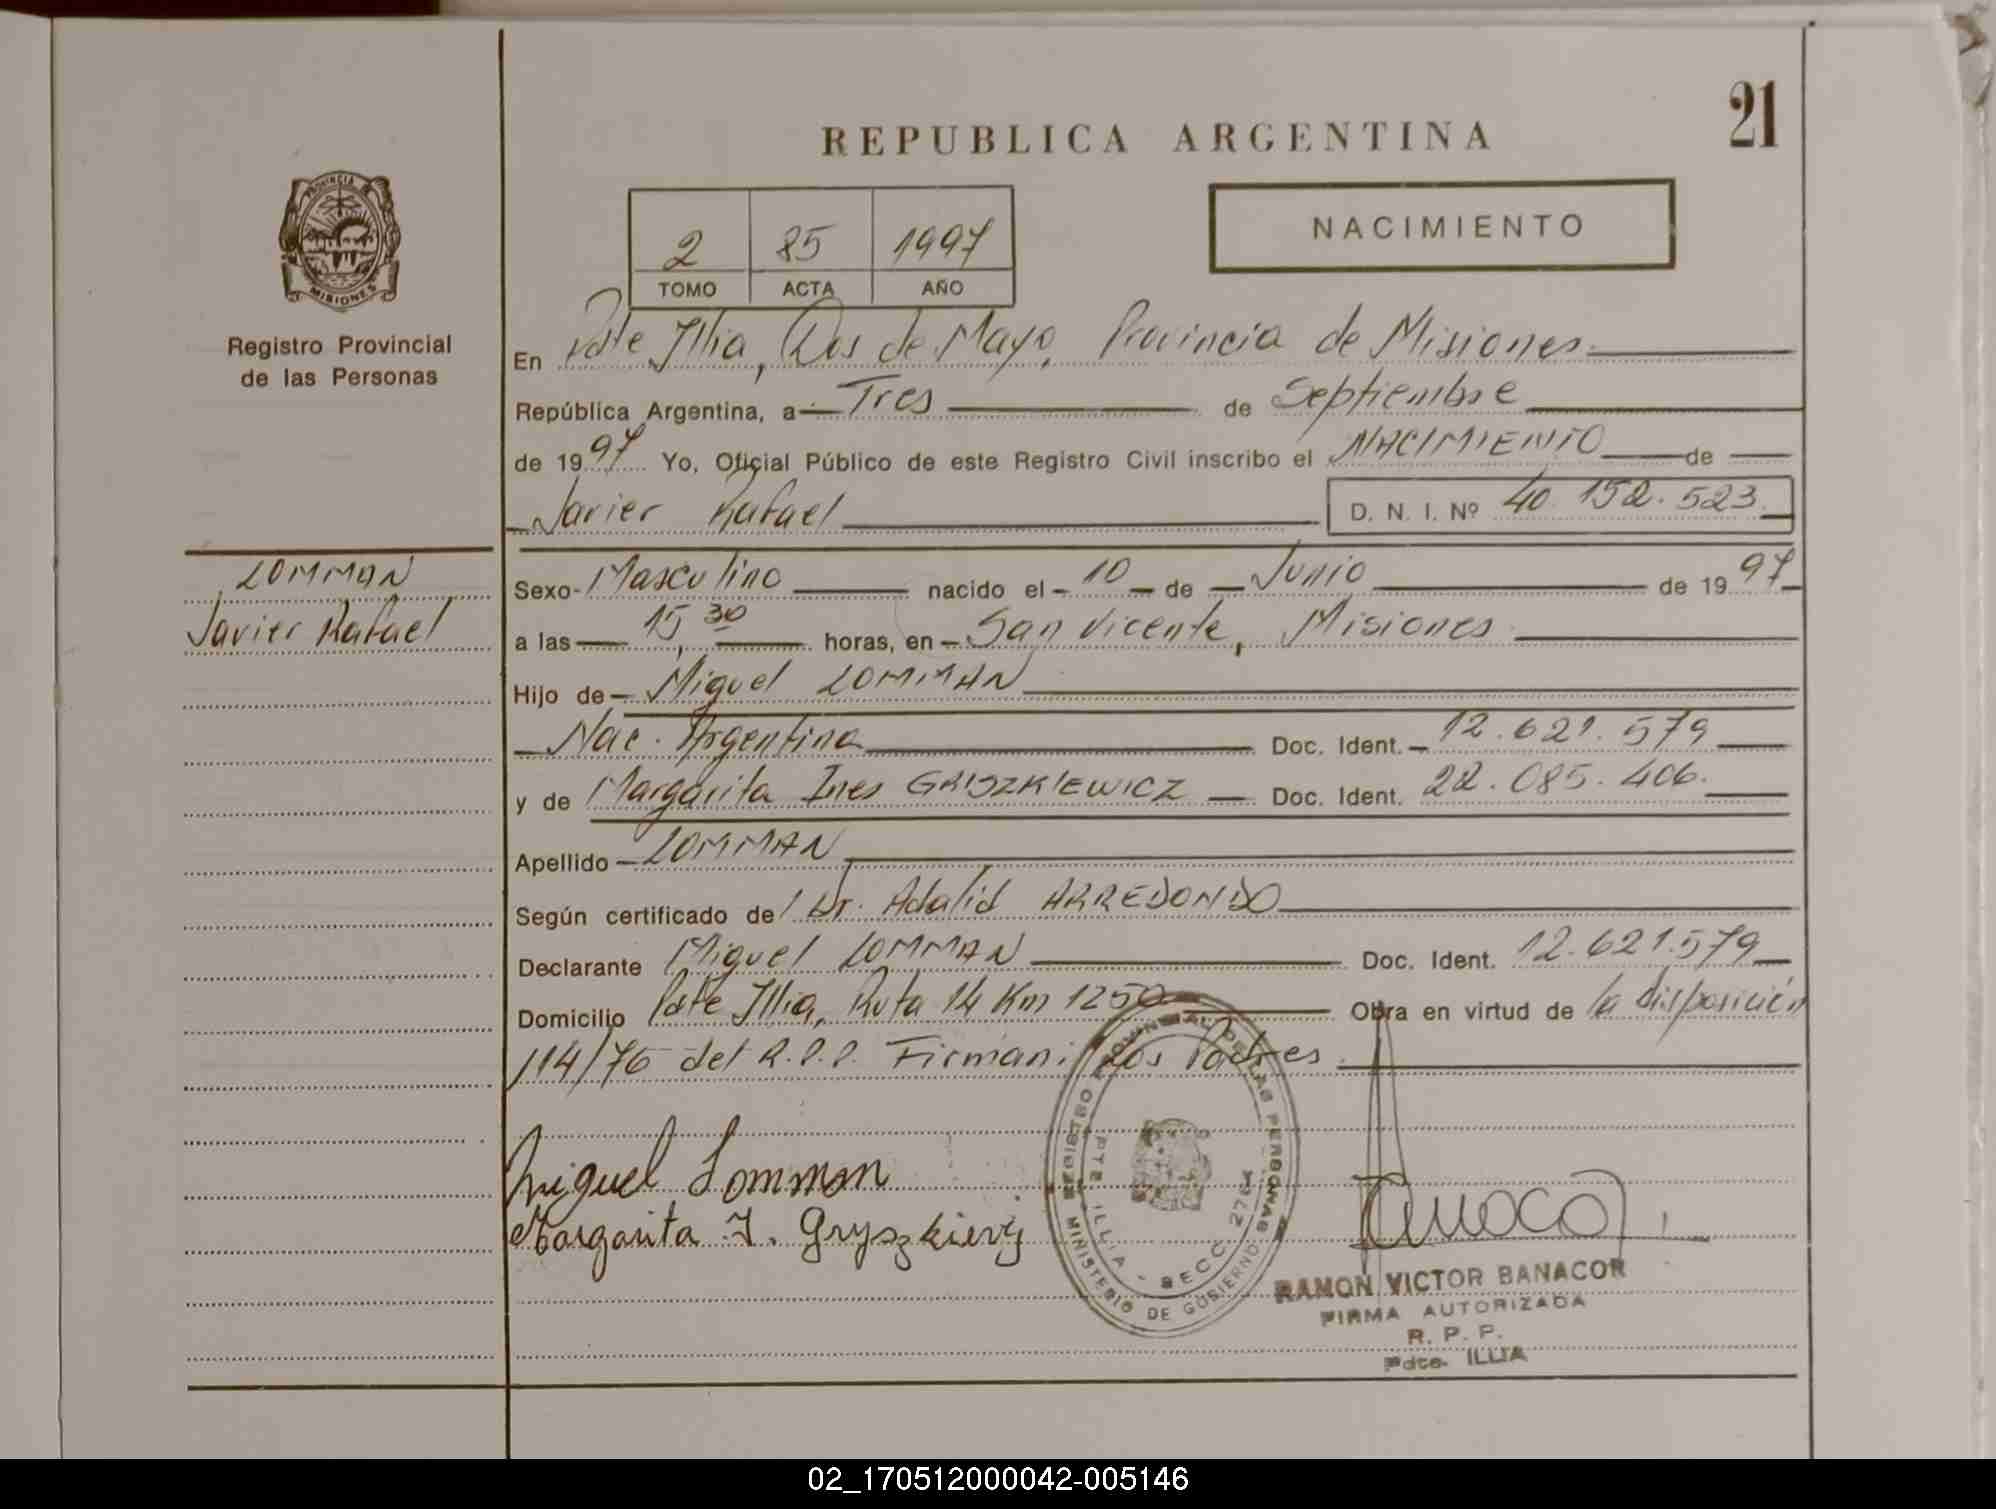 21
REPUBLICA ARGENTINA
PROVINCIA DE
MISIONES
Registro Provincial
de las Personas
2 85 1997
TOMO ACTA AÑO
NACIMIENTO
En Pdte Illia, Dos de Mayo, Provincia de Misiones
República Argentina, a Tres de Septiembre
de 1997 Yo, Oficial Público de este Registro Civil inscribo el NACIMIENTO de
Javier Rafael D. N. I. Nº 40.152.523
LOMMAN
Javier Rafael
Sexo Masculino nacido el 10 de Junio de 1997
a las 15,30 horas, en San Vicente, Misiones
Hijo de Miguel LOMMAN
Nac. Argentina Doc. Ident. 12.621.579
y de Margarita Ines GRISZKIEWICZ Doc. Ident. 22.085.406.
Apellido LOMMAN
Según certificado del Dr. Adalid ARREDONDO
Declarante Miguel LOMMAN Doc. Ident. 12.621.579
Domicilio Pdte Illia, Ruta 14 Km 1250 Obra en virtud de la disposición
114/76 del R.P.P. Firman: los Padres.
Miguel Lomman
Margarita I.
REGISTRO PROVINCIAL DE LAS PERSONAS
MINISTERIO DE GOBIERNO
PTE. ILLIA - SECC. 2764
RAMON VICTOR BANACOR
FIRMA AUTORIZADA
R. P. P.
Pdte. ILLIA
02_170512000042-005146